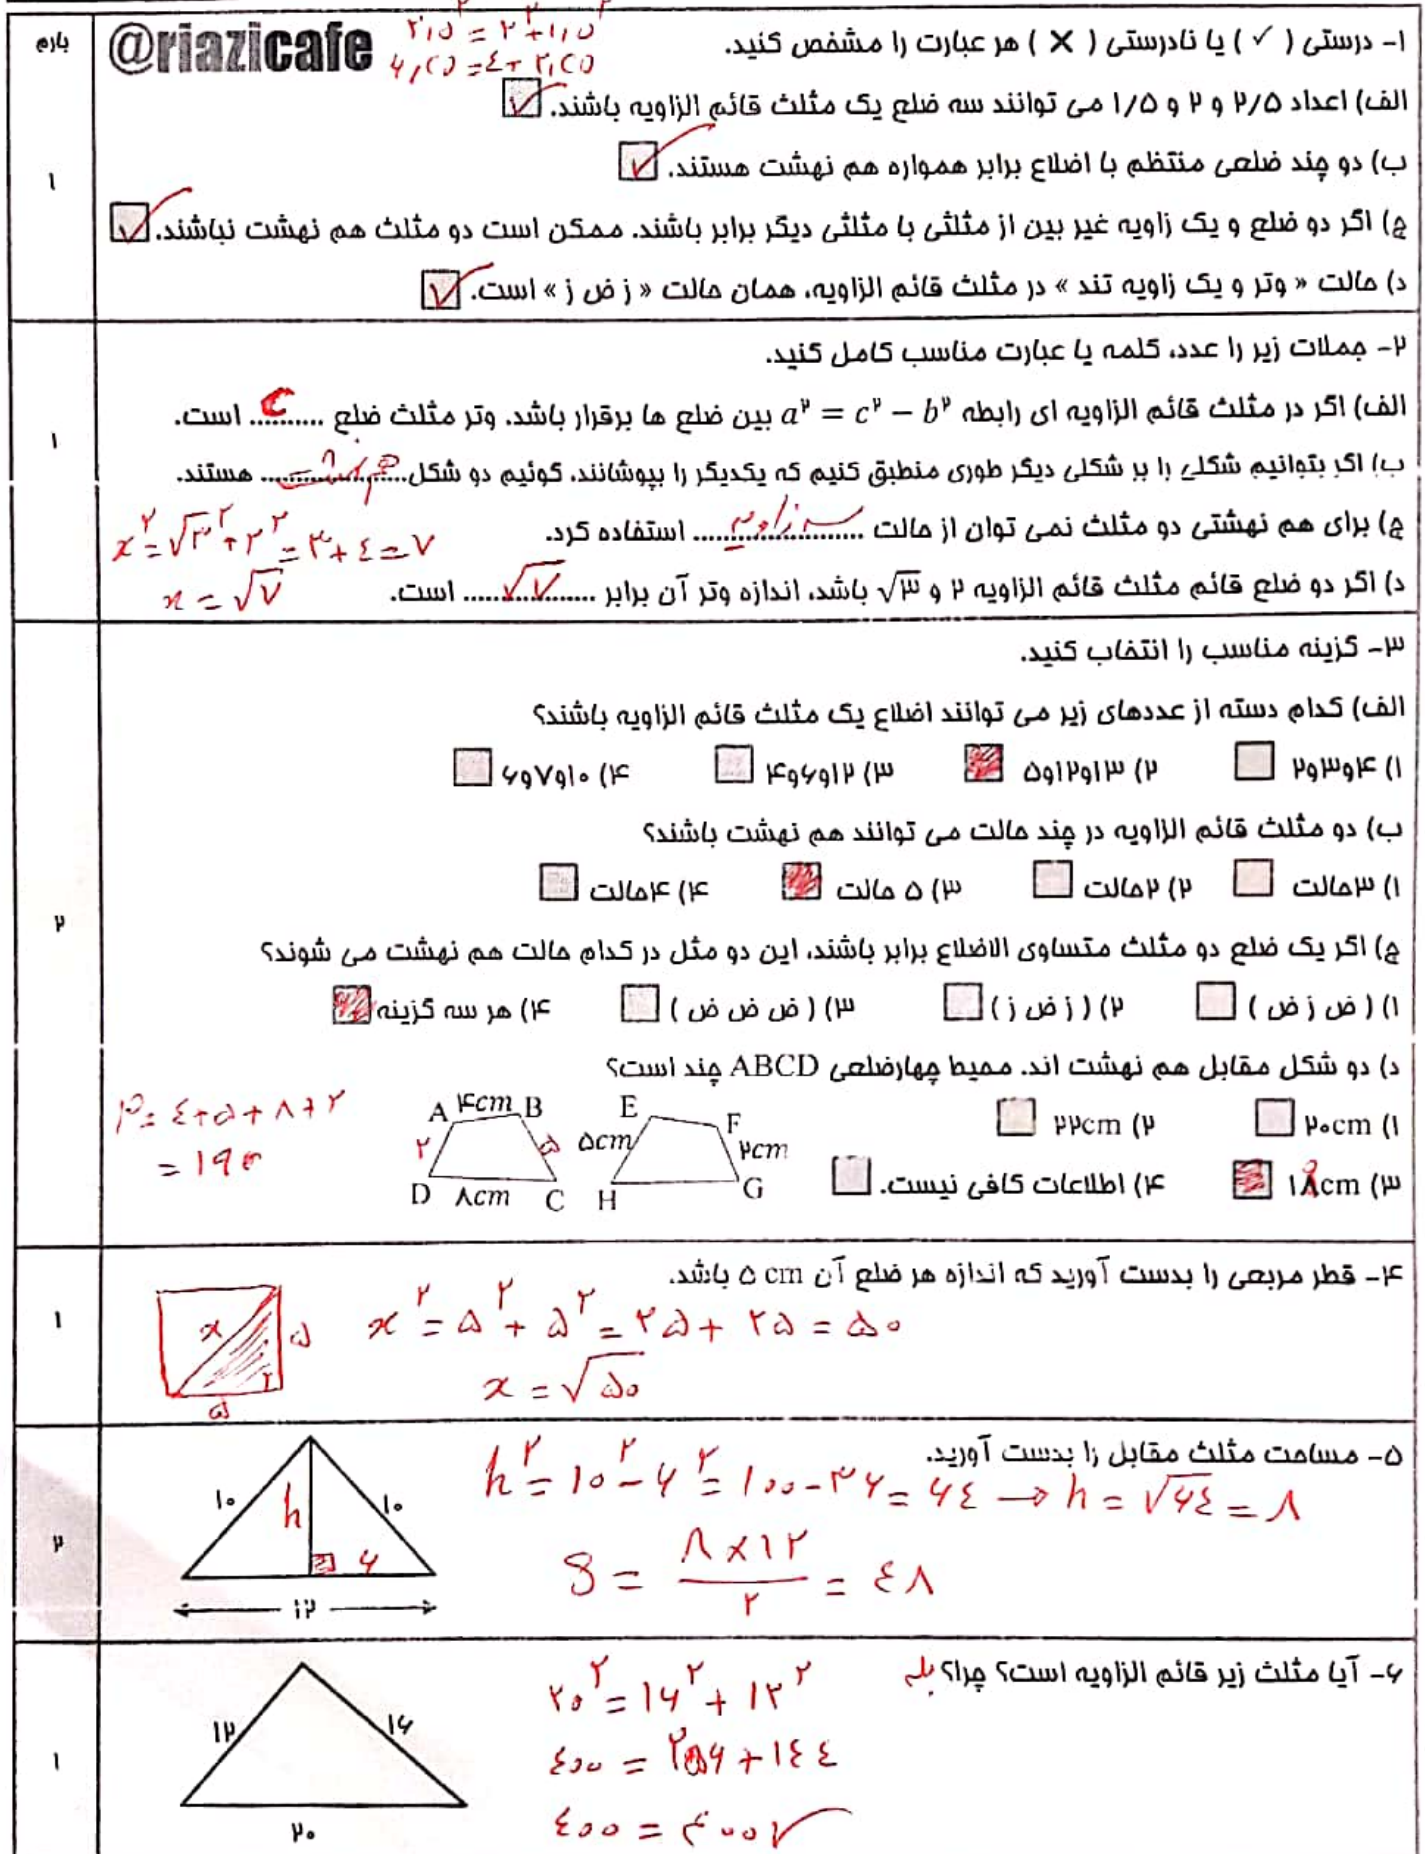 بارم
@riazicafe
۲٫۵² = ۲² + ۱٫۵²
۶٫۲۵ = ٤ + ۲٫۲۵
۱- درستی ( ✓ ) یا نادرستی ( ✗ ) هر عبارت را مشخص کنید.
الف) اعداد ۲/۵ و ۲ و ۱/۵ می توانند سه ضلع یک مثلث قائم الزاویه باشند. ✓
ب) دو چند ضلعی منتظم با اضلاع برابر همواره هم نهشت هستند. ✓
ج) اگر دو ضلع و یک زاویه غیر بین از مثلثی با مثلثی دیگر برابر باشند. ممکن است دو مثلث هم نهشت نباشند. ✓
د) حالت « وتر و یک زاویه تند » در مثلث قائم الزاویه، همان حالت « ز ض ز » است. ✓
۱
۲- جملات زیر را عدد، کلمه یا عبارت مناسب کامل کنید.
الف) اگر در مثلث قائم الزاویه ای رابطه a² = c² − b² بین ضلع ها برقرار باشد. وتر مثلث ضلع ...c... است.
ب) اگر بتوانیم شکلی را بر شکلی دیگر طوری منطبق کنیم که یکدیگر را بپوشانند، گوئیم دو شکل ...هم نهشت... هستند.
ج) برای هم نهشتی دو مثلث نمی توان از حالت ...سه زاویه... استفاده کرد.
x² = √۳² + ۲² = ۳ + ٤ = ۷
د) اگر دو ضلع قائم مثلث قائم الزاویه ۲ و √۳ باشد، اندازه وتر آن برابر ...√۷... است.
x = √۷
۱
۳- گزینه مناسب را انتخاب کنید.
الف) کدام دسته از عددهای زیر می توانند اضلاع یک مثلث قائم الزاویه باشند؟
۱) ۴و۳و۲ ۲) ۱۳و۱۲و۵ ۳) ۱۲و۶و۴ ۴) ۱۰و۷و۶
ب) دو مثلث قائم الزاویه در چند حالت می توانند هم نهشت باشند؟
۱) ۳حالت ۲) ۲حالت ۳) ۵ حالت ۴) ۴حالت
ج) اگر یک ضلع دو مثلث متساوی الاضلاع برابر باشند، این دو مثل در کدام حالت هم نهشت می شوند؟
۱) ( ض ز ض ) ۲) ( ز ض ز ) ۳) ( ض ض ض ) ۴) هر سه گزینه
د) دو شکل مقابل هم نهشت اند. محیط چهارضلعی ABCD چند است؟
۱) ۲۰cm ۲) ۲۲cm
۳) ۱۸cm ۹ ۴) اطلاعات کافی نیست.
A ۴cm B ۲ ۵ D ۸cm C
E F ۵cm ۲cm H G
P = ٤ + ۵ + ۸ + ۲
= ۱۹
۲
۴- قطر مربعی را بدست آورید که اندازه هر ضلع آن ۵ cm باشد.
x² = ۵² + ۵² = ۲۵ + ۲۵ = ۵۰
x = √۵۰
x ۵ ۵
۱
۵- مساحت مثلث مقابل را بدست آورید.
h² = ۱۰² − ۶² = ۱۰۰ − ۳۶ = ۶٤ → h = √۶٤ = ۸
S = ۸ × ۱۲ / ۲ = ٤۸
۱۰ h ۱۰ ۶
۱۲
۲
۶- آیا مثلث زیر قائم الزاویه است؟ چرا؟ بله
۲۰² = ۱۶² + ۱۲²
٤۰۰ = ۲۵۶ + ۱٤٤
٤۰۰ = ۴۰۰ ✓
۱۲ ۱۶
۲۰
۱